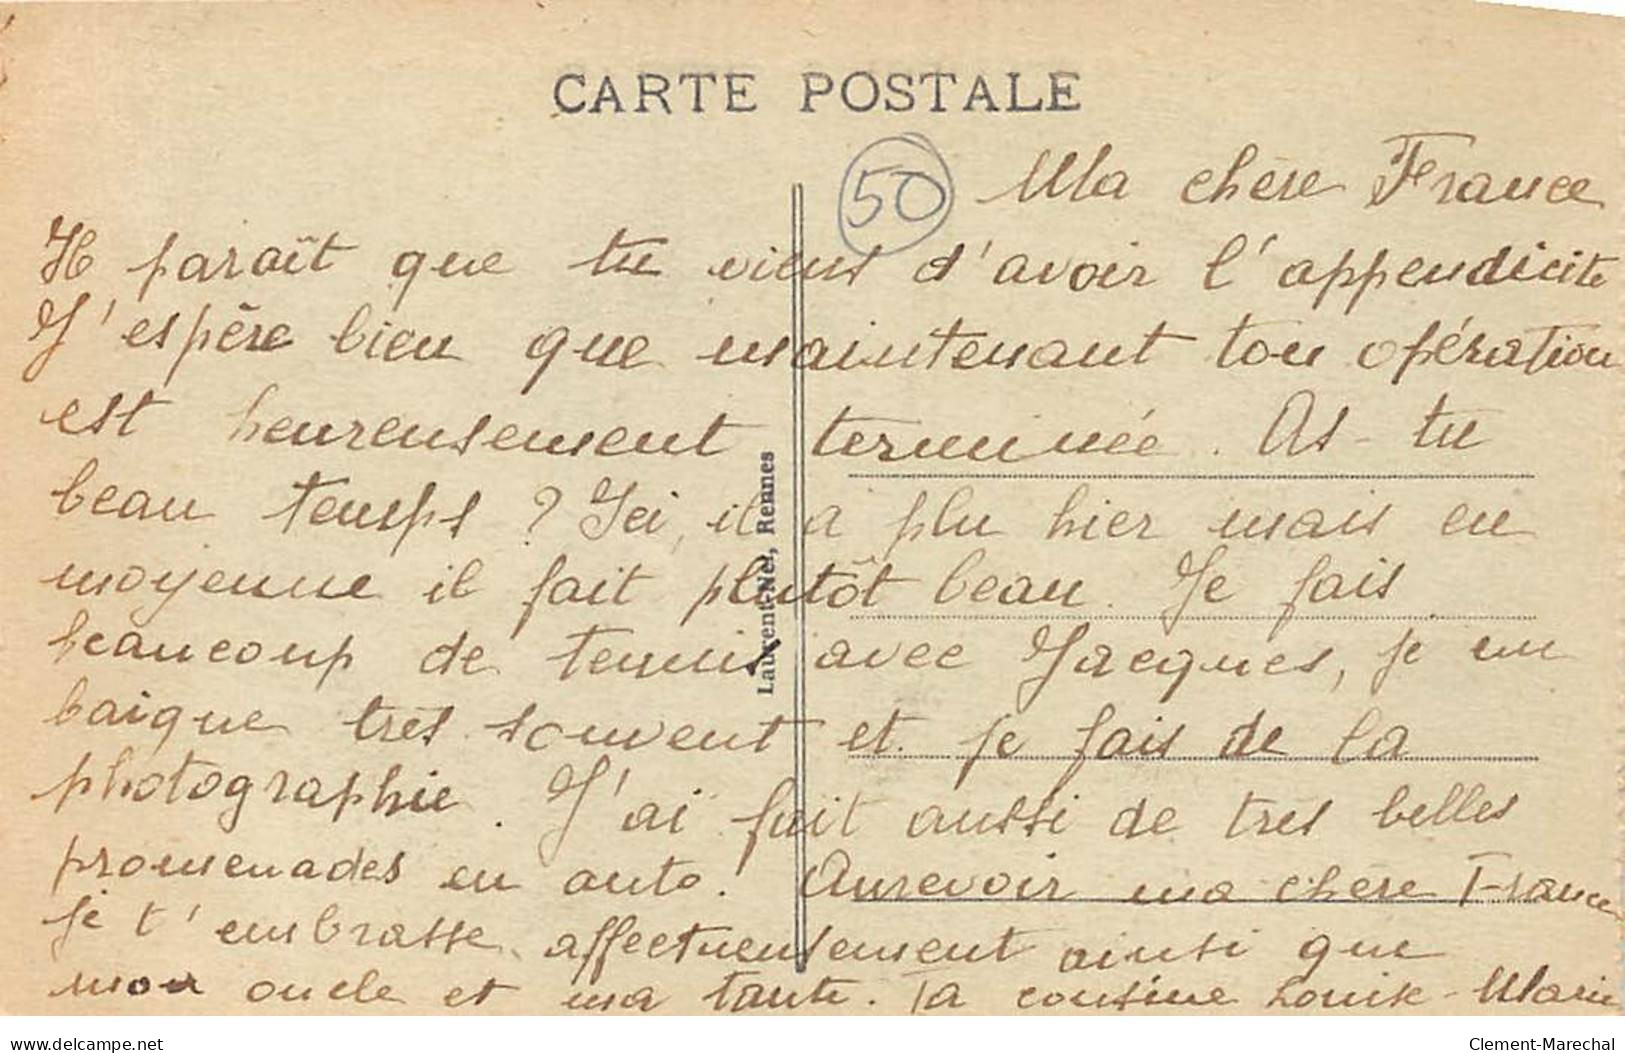 CARTE POSTALE
50
Ma chère France
Il paraît que tu viens d'avoir l'appendicite
J'espère bien que maintenant ton opération
est heureusement terminée. As-tu
beau temps ? Ici, il a plu hier mais en
moyenne il fait plutôt beau. Je fais
beaucoup de tennis avec Jacques, je me
baigne très souvent et je fais de la
photographie. J'ai fait aussi de très belles
promenades en auto. Aurevoir ma chère France
je t'embrasse affectueusement ainsi que
mon oncle et ma tante. Ta cousine Louise-Marie
Laurent-Nel, Rennes
www.delcampe.net
Clement-Marechal